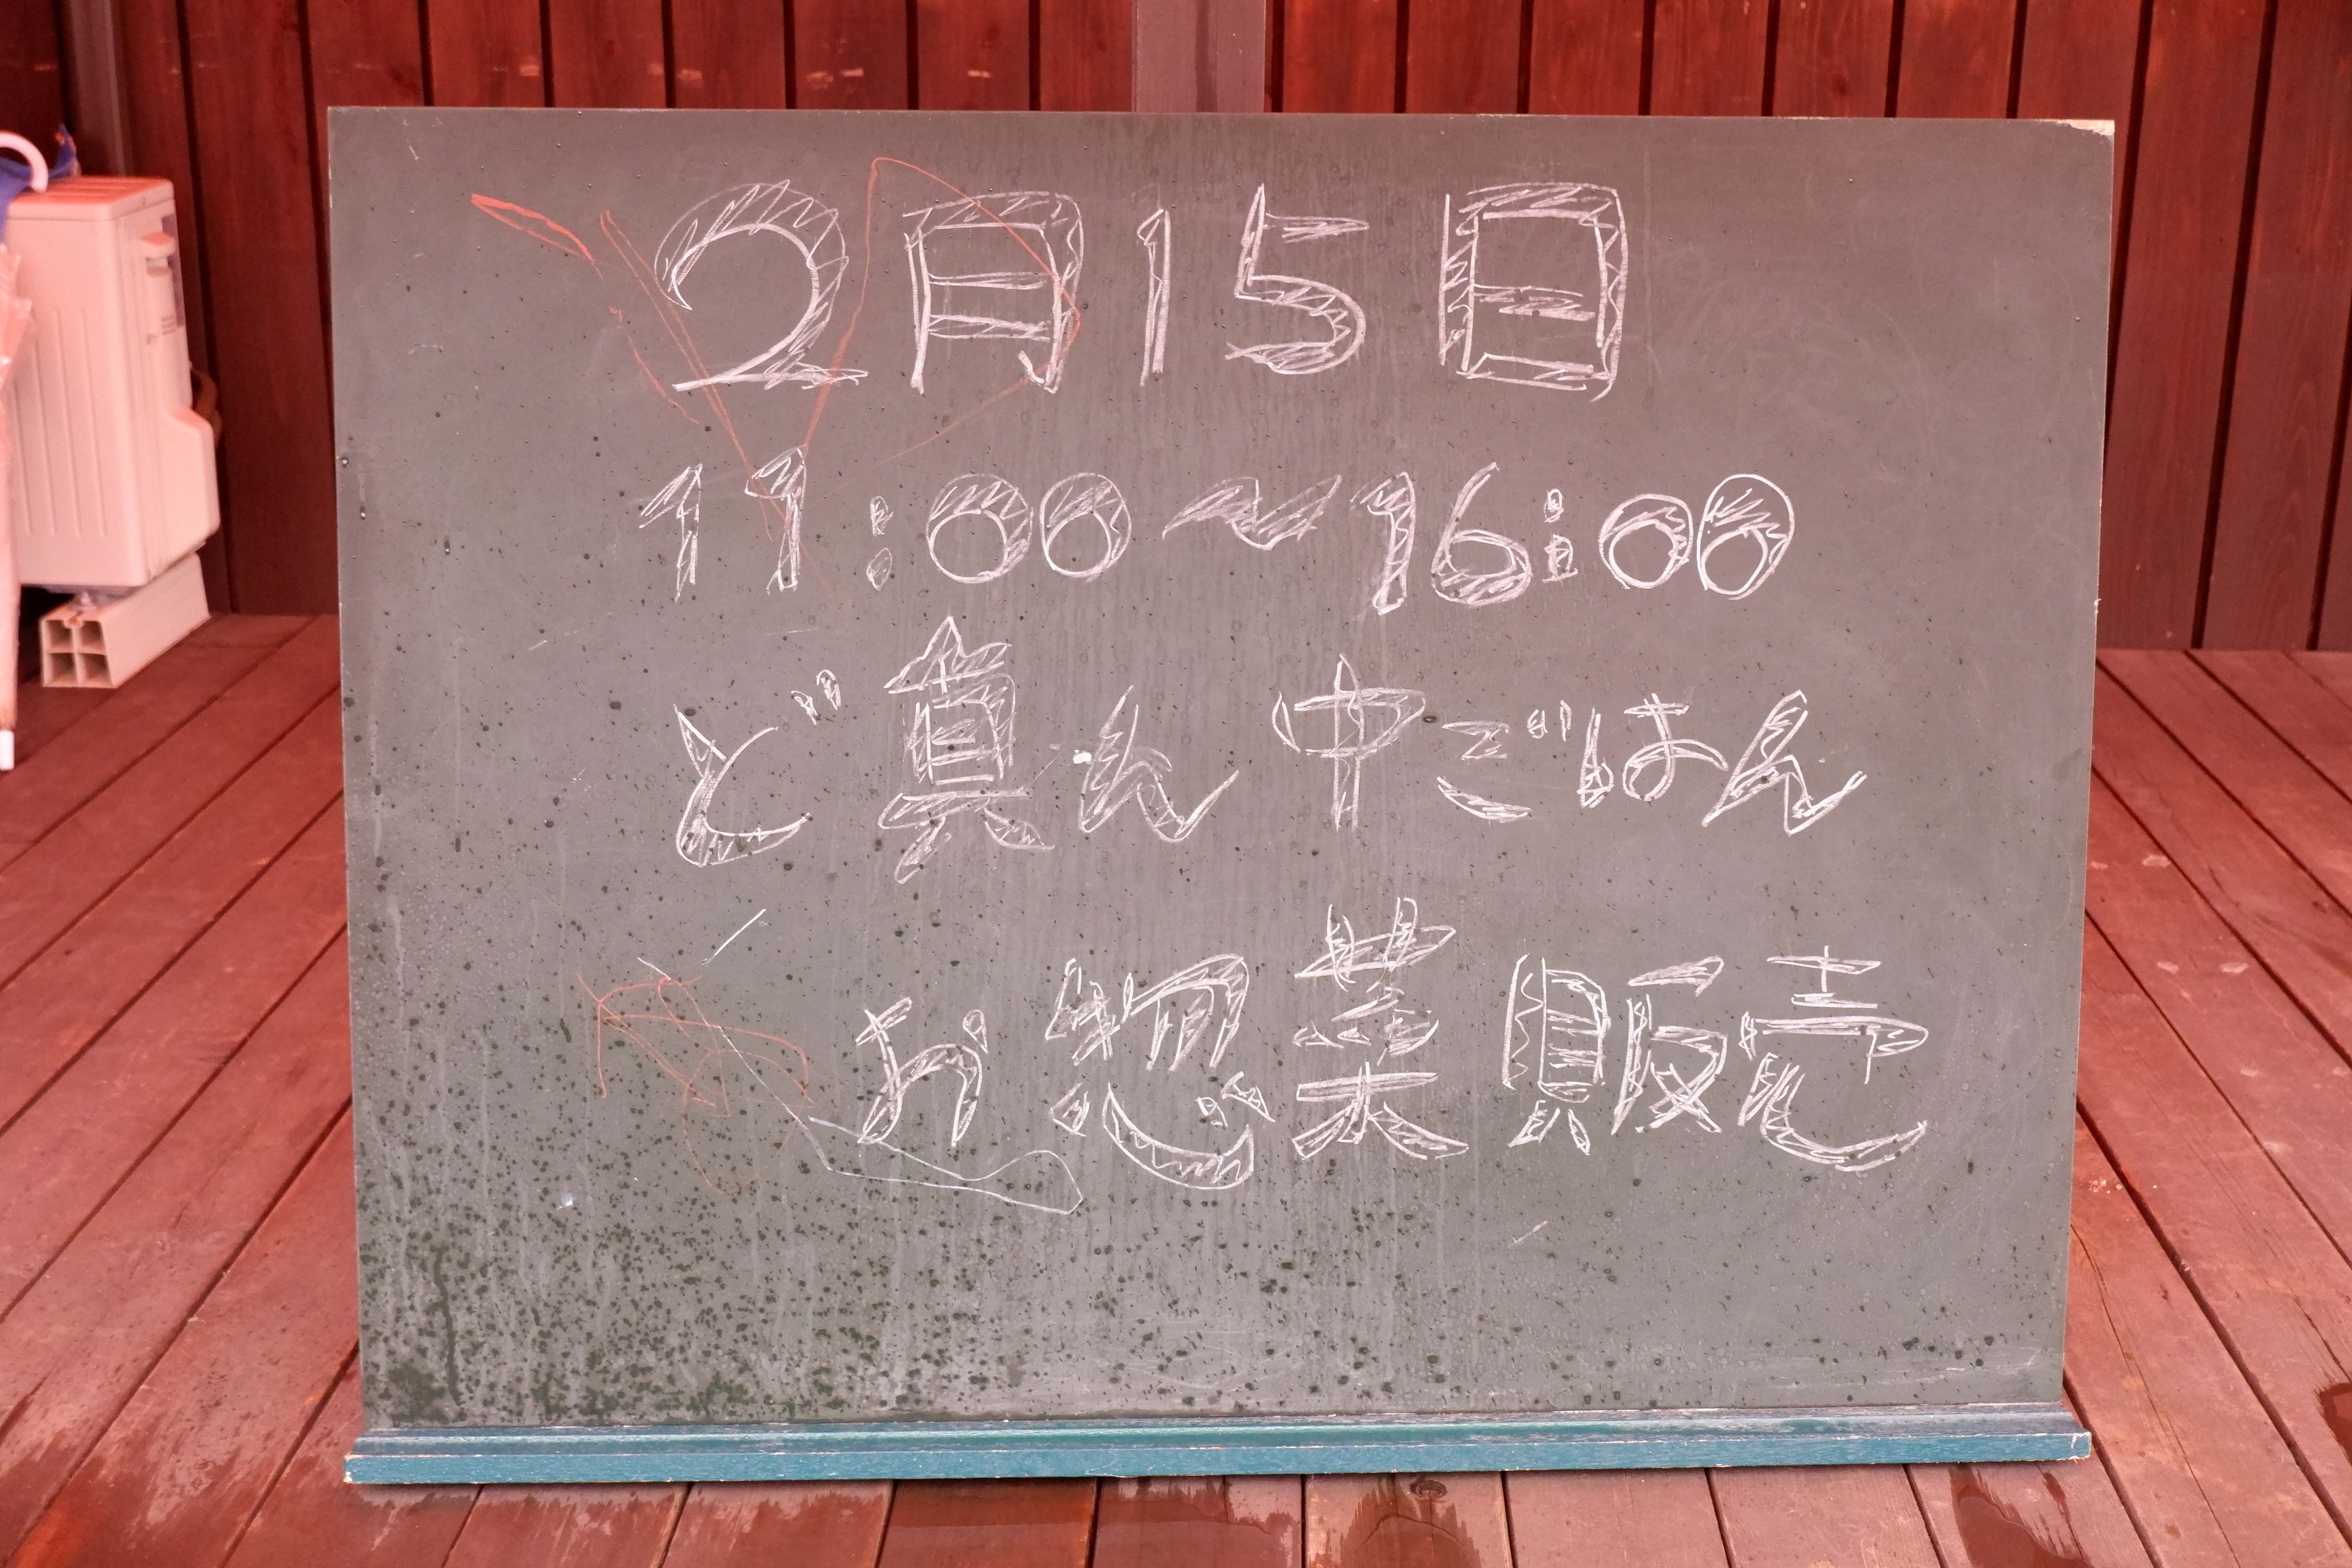 2月15日
11:00~16:00
ど真ん中ごはん
お惣菜販売